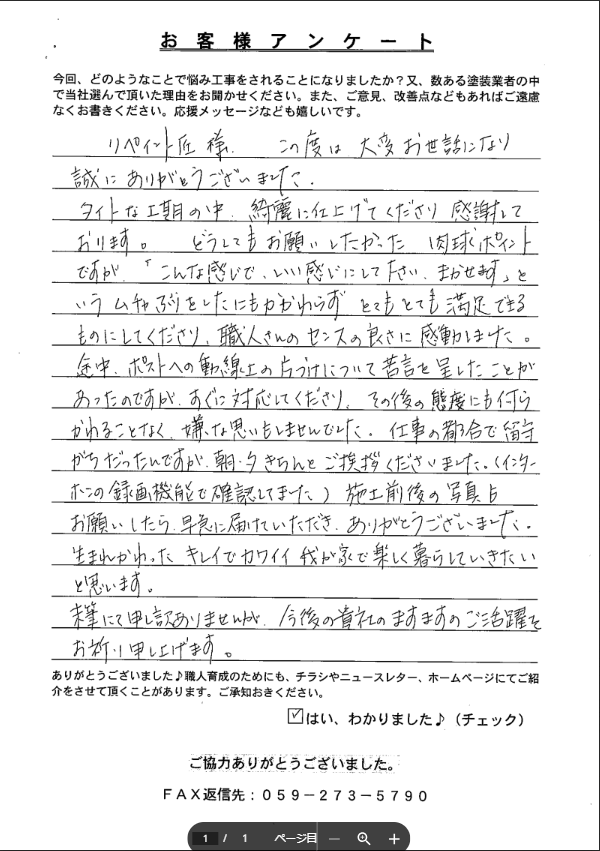 お客様アンケート
今回、どのようなことで悩み工事をされることになりましたか？又、数ある塗装業者の中
で当社選んで頂いた理由をお聞かせください。また、ご意見、改善点などもあればご遠慮
なくお書きください。応援メッセージなども嬉しいです。
リペイント匠様．　この度は 大変お世話になり
誠にありがとうございました．
タイトな工期の中、綺麗に仕上げてくださり 感謝して
おります。　どうしてもお願いしたかった 肉球ポイント
ですが、「こんな感じで、いい感じにして下さい、まかせます」と
いうムチャぶりをしたにもかかわらず とてもとても満足できる
ものにしてくださり、職人さんのセンスの良さに感動しました。
途中、ポストへの動線上の片づけについて苦言を呈したことが
あったのですが、すぐに対応してくださり、その後の態度にも何ら
かわることなく、嫌な思いもしませんでした。仕事の都合で留守
がちだったんですが、朝・夕きちんとご挨拶くださいました。（インター
ホンの録画機能で確認してました）施工前後の写真も
お願いしたら、早急に届けていただき、ありがとうございました。
生まれかわった キレイでカワイイ 我が家で楽しく暮らしていきたい
と思います。
末筆にて申し訳ありませんが、今後の貴社のますますのご活躍を
お祈り申し上げます。
ありがとうございました♪職人育成のためにも、チラシやニュースレター、ホームページにてご紹
介をさせて頂くことがあります。ご承知おきください。
☑はい、わかりました♪（チェック）
ご協力ありがとうございました。
ＦＡＸ返信先：０５９－２７３－５７９０
1 / 1 ページ目 － ＋